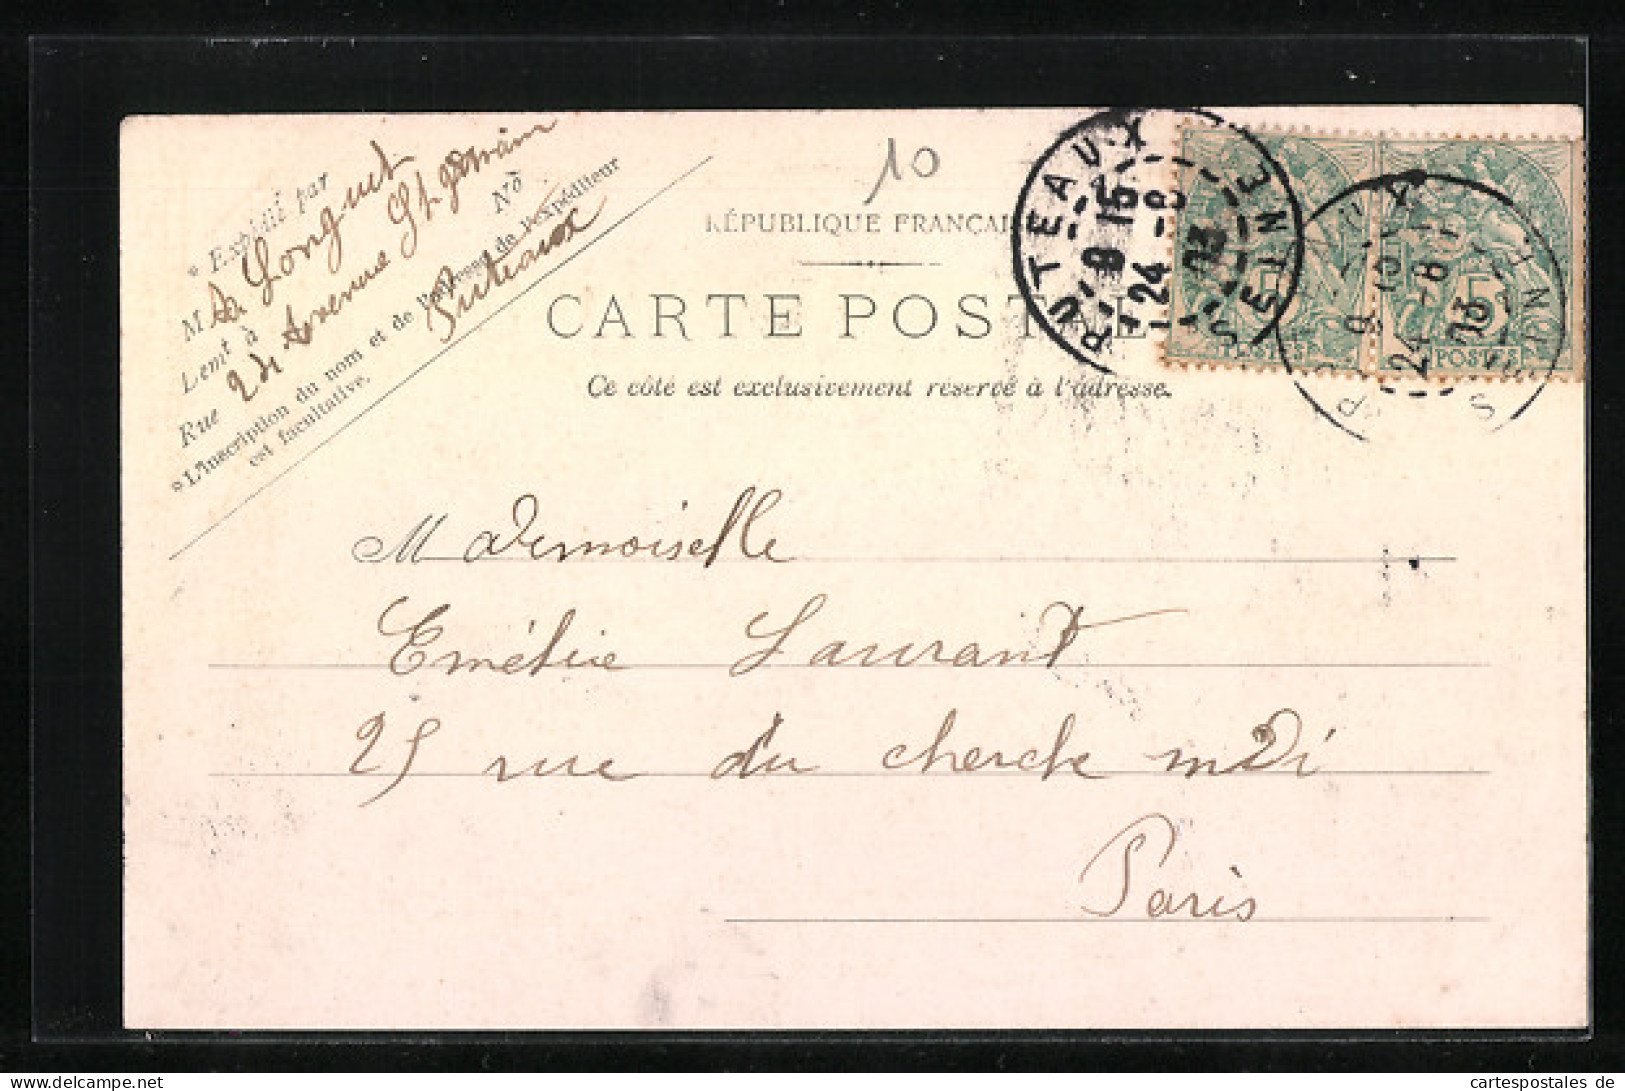 * Expédié par
M A. Longuet
Lem^t à
Rue 24 Avenue St germain N°
Puteaux
*L'inscription du nom et de l'adresse de l'expéditeur
est facultative.
10
RÉPUBLIQUE FRANÇAI
CARTE POST
Ce côté est exclusivement réservé à l'adresse.
PUTEAUX
9 15
24 -8
03
SEINE
5
POSTES
5
POSTES
24 -8
03
Mademoiselle
Emélie Laurant
25 rue du cherche midi
Paris
cartespostales de